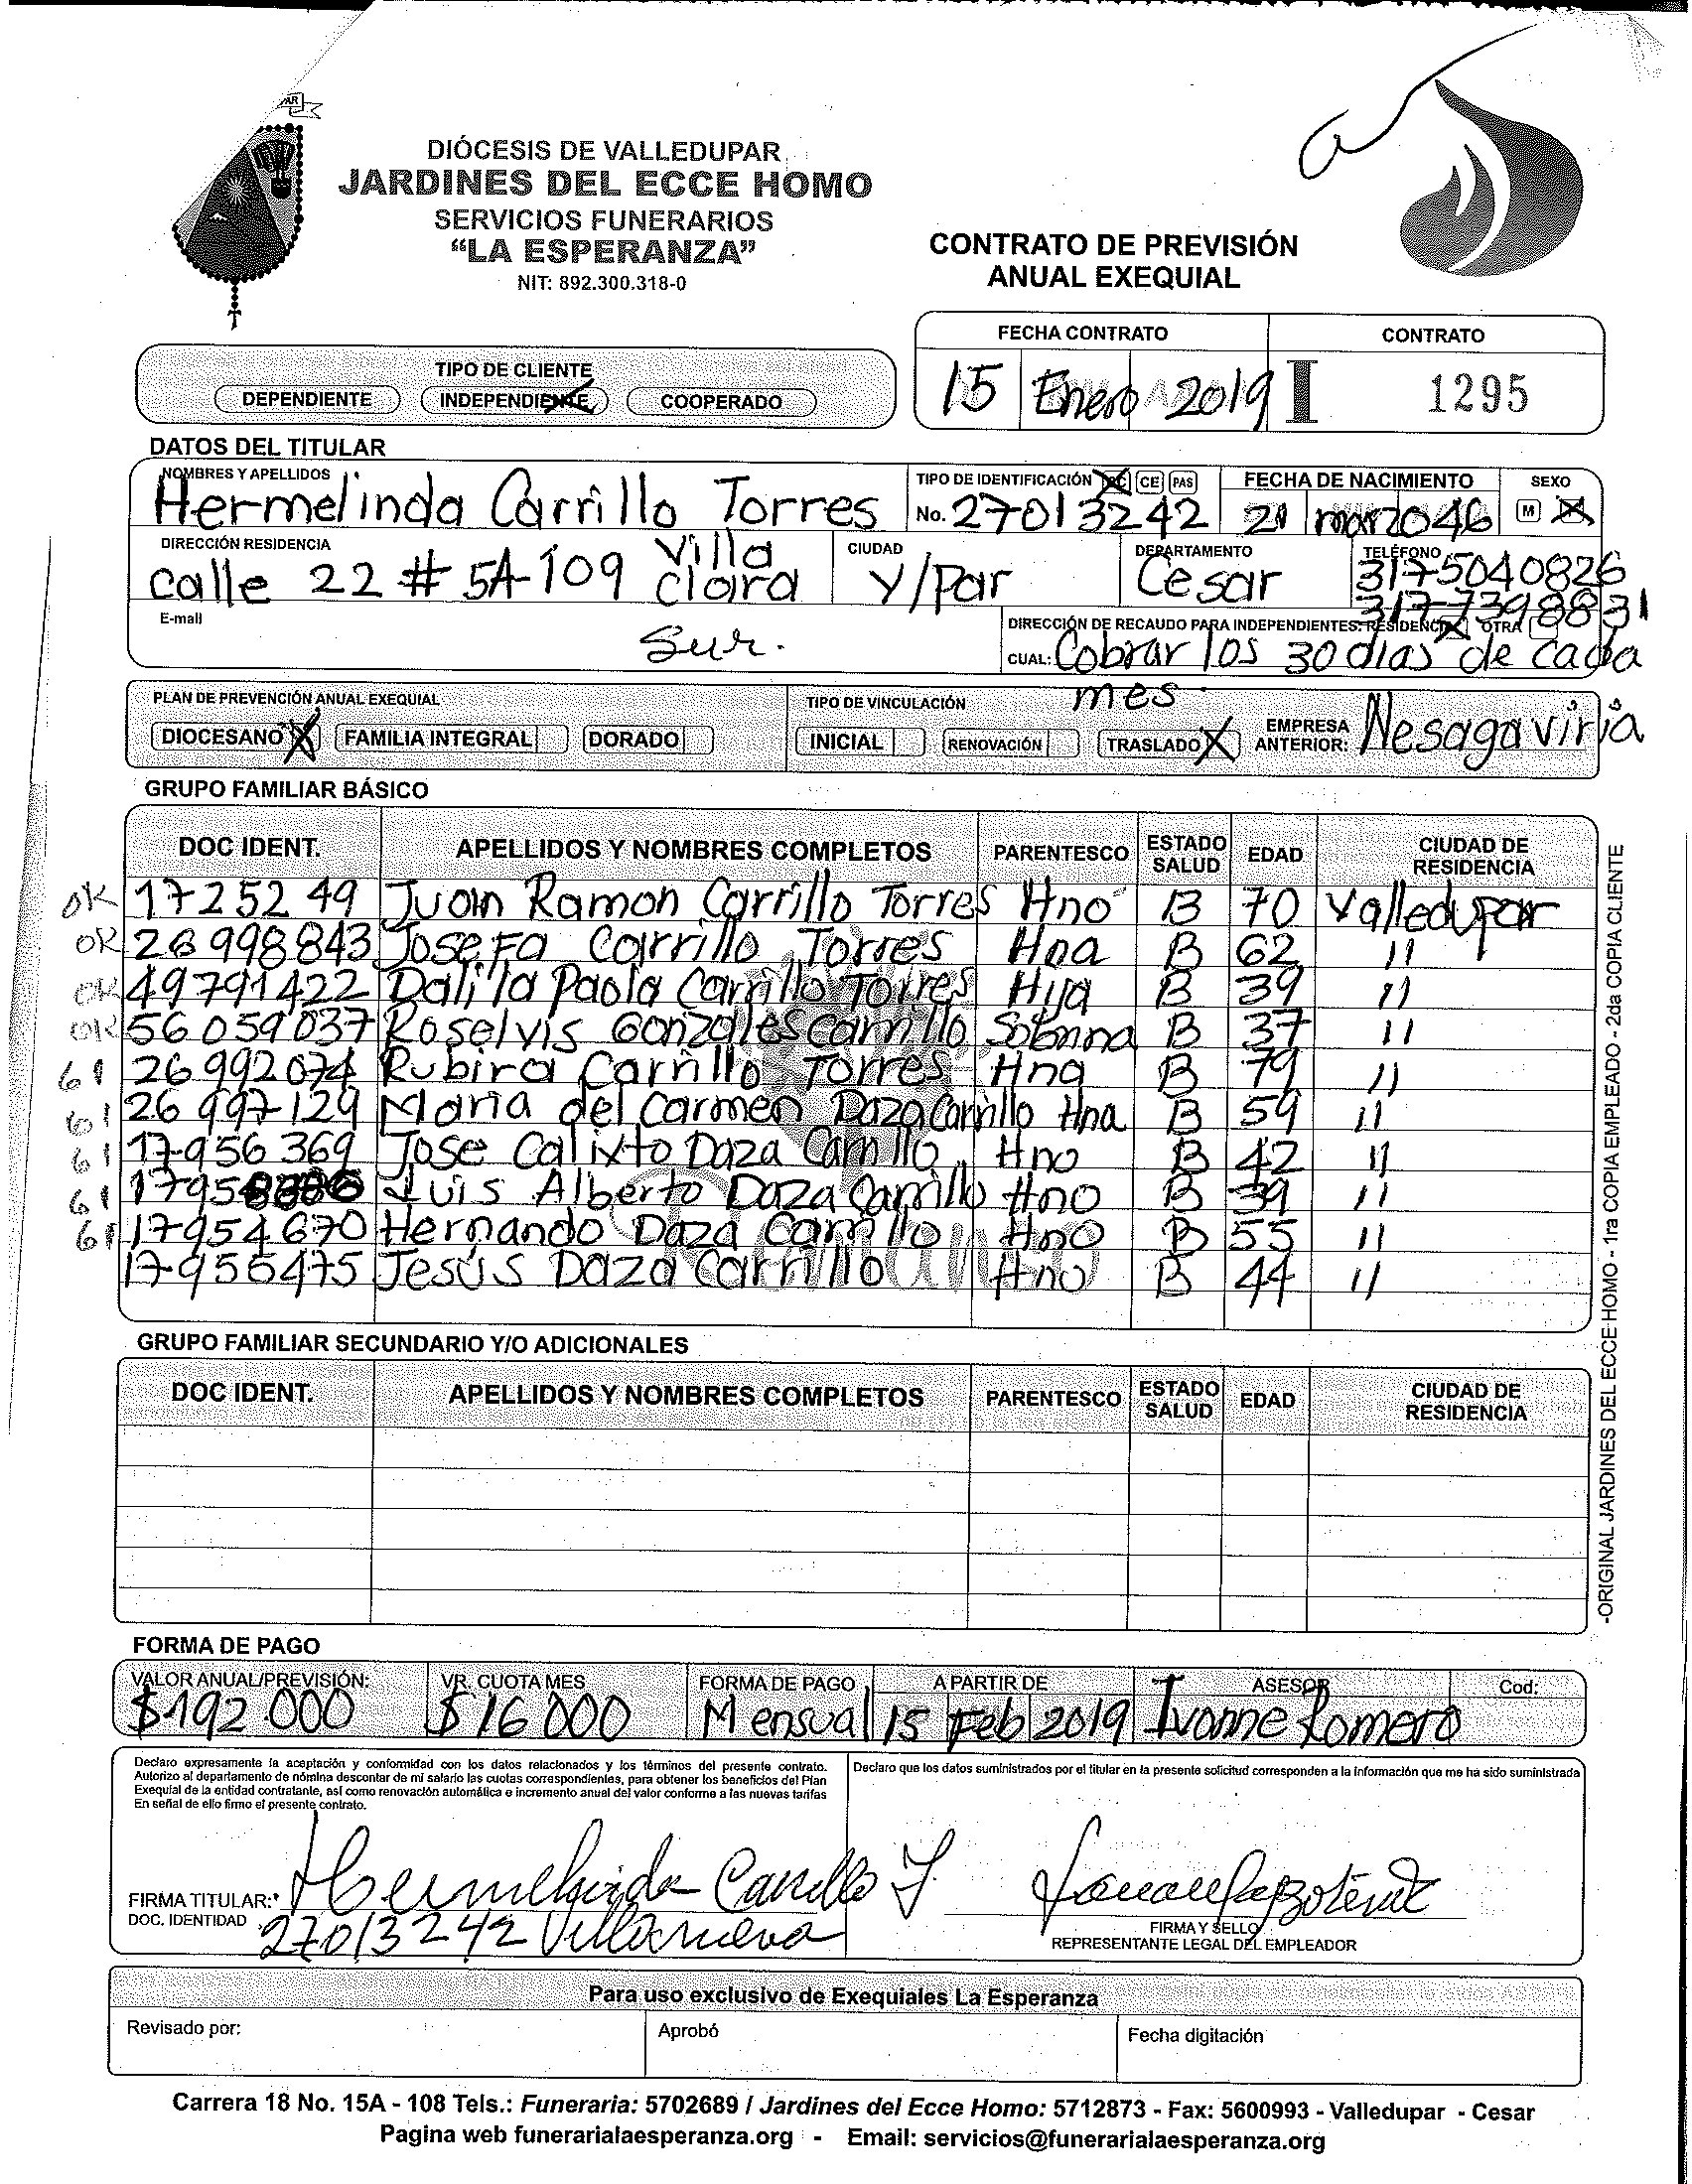 DIÓCESIS DE VALLEDUPAR
JARDINES DEL ECCE HOMO
SERVICIOS FUNERARIOS
“LA ESPERANZA”
NIT: 892.300.318-0
CONTRATO DE PREVISIÓN
ANUAL EXEQUIAL
FECHA CONTRATO CONTRATO
15 Enero 2019 I 1295
TIPO DE CLIENTE
DEPENDIENTE INDEPENDIENTE COOPERADO
DATOS DEL TITULAR
NOMBRES Y APELLIDOS TIPO DE IDENTIFICACIÓN CE PAS FECHA DE NACIMIENTO SEXO
Hermelinda Carrillo Torres No. 27013242 21 marzo 46 M
DIRECCIÓN RESIDENCIA CIUDAD DEPARTAMENTO TELÉFONO
calle 22 # 5A-109 Villa clara V/Par Cesar 3175040826
3177398831
E-mail Sur.
DIRECCIÓN DE RECAUDO PARA INDEPENDIENTES: RESIDENCIA OTRA
CUAL: Cobrar los 30 dias de cada
mes
PLAN DE PREVENCIÓN ANUAL EXEQUIAL TIPO DE VINCULACIÓN
DIOCESANO X FAMILIA INTEGRAL DORADO INICIAL RENOVACIÓN TRASLADO X EMPRESA ANTERIOR: Nesagaviria
GRUPO FAMILIAR BÁSICO
DOC IDENT. APELLIDOS Y NOMBRES COMPLETOS PARENTESCO ESTADO SALUD EDAD CIUDAD DE RESIDENCIA
OK 1725249 Juan Ramon Carrillo Torres Hno B 70 Valledupar
OK 26998843 Josefa Carrillo Torres Hna B 62 11
OK 49791422 Dalila Paola Carrillo Torres Hija B 39 11
OK 56059037 Roselvis Gonzales Carrillo Sobrina B 37 11
61 26992074 Rubira Carrillo Torres Hna B 79 11
61 26997129 Maria del Carmen Daza Carrillo Hna B 59 11
61 17956369 Jose Calixto Daza Carrillo Hno B 42 11
61 Luis Alberto Daza Carrillo Hno B 39 11
61 17954670 Hernando Daza Carrillo Hno B 55 11
17956475 Jesús Daza Carrillo Hno B 44 11
GRUPO FAMILIAR SECUNDARIO Y/O ADICIONALES
DOC IDENT. APELLIDOS Y NOMBRES COMPLETOS PARENTESCO ESTADO SALUD EDAD CIUDAD DE RESIDENCIA
-ORIGINAL JARDINES DEL ECCE HOMO - 1ra COPIA EMPLEADO - 2da COPIA CLIENTE
FORMA DE PAGO
VALOR ANUAL/PREVISIÓN: VR. CUOTA MES FORMA DE PAGO A PARTIR DE ASESOR Cod:
$192.000 $16000 Mensual 15 Feb 2019 Ivonne Romero
Declaro expresamente la aceptación y conformidad con los datos relacionados y los términos del presente contrato.
Autorizo al departamento de nómina descontar de mi salario las cuotas correspondientes, para obtener los beneficios del Plan
Exequial de la entidad contratante, así como renovación automática e incremento anual del valor conforme a las nuevas tarifas
En señal de ello firmo el presente contrato.
Declaro que los datos suministrados por el titular en la presente solicitud corresponden a la información que me ha sido suministrada
FIRMA TITULAR: Hermelinda Carrillo T.
DOC. IDENTIDAD 27013242 Villanueva
FIRMA Y SELLO
REPRESENTANTE LEGAL DEL EMPLEADOR
Para uso exclusivo de Exequiales La Esperanza
Revisado por: Aprobó Fecha digitación
Carrera 18 No. 15A - 108 Tels.: Funeraria: 5702689 / Jardines del Ecce Homo: 5712873 - Fax: 5600993 - Valledupar - Cesar
Pagina web funerarialaesperanza.org - Email: servicios@funerarialaesperanza.org